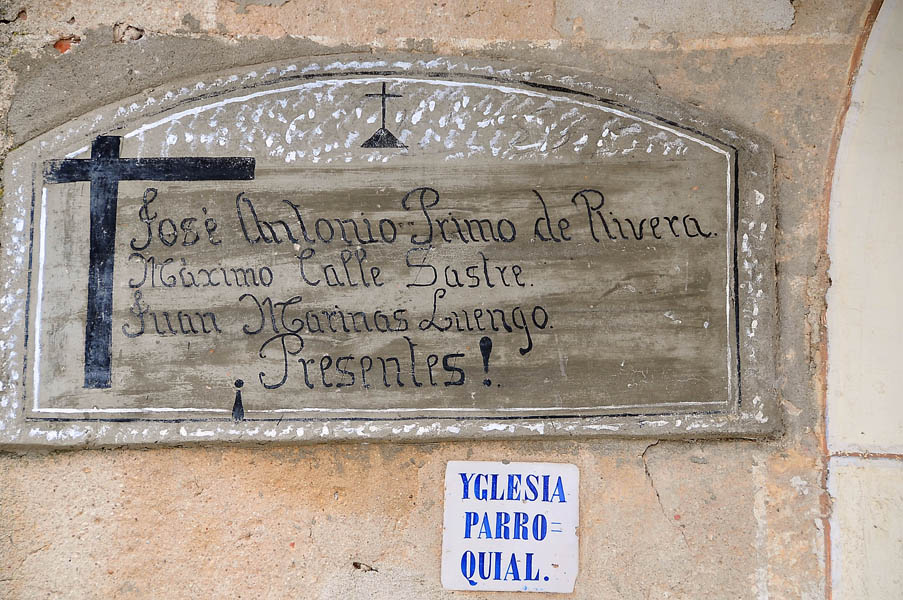 José Antonio Primo de Rivera.
Máximo Calle Sastre.
Juan Marinas Luengo.
¡Presentes!.
YGLESIA
PARRO=
QUIAL.